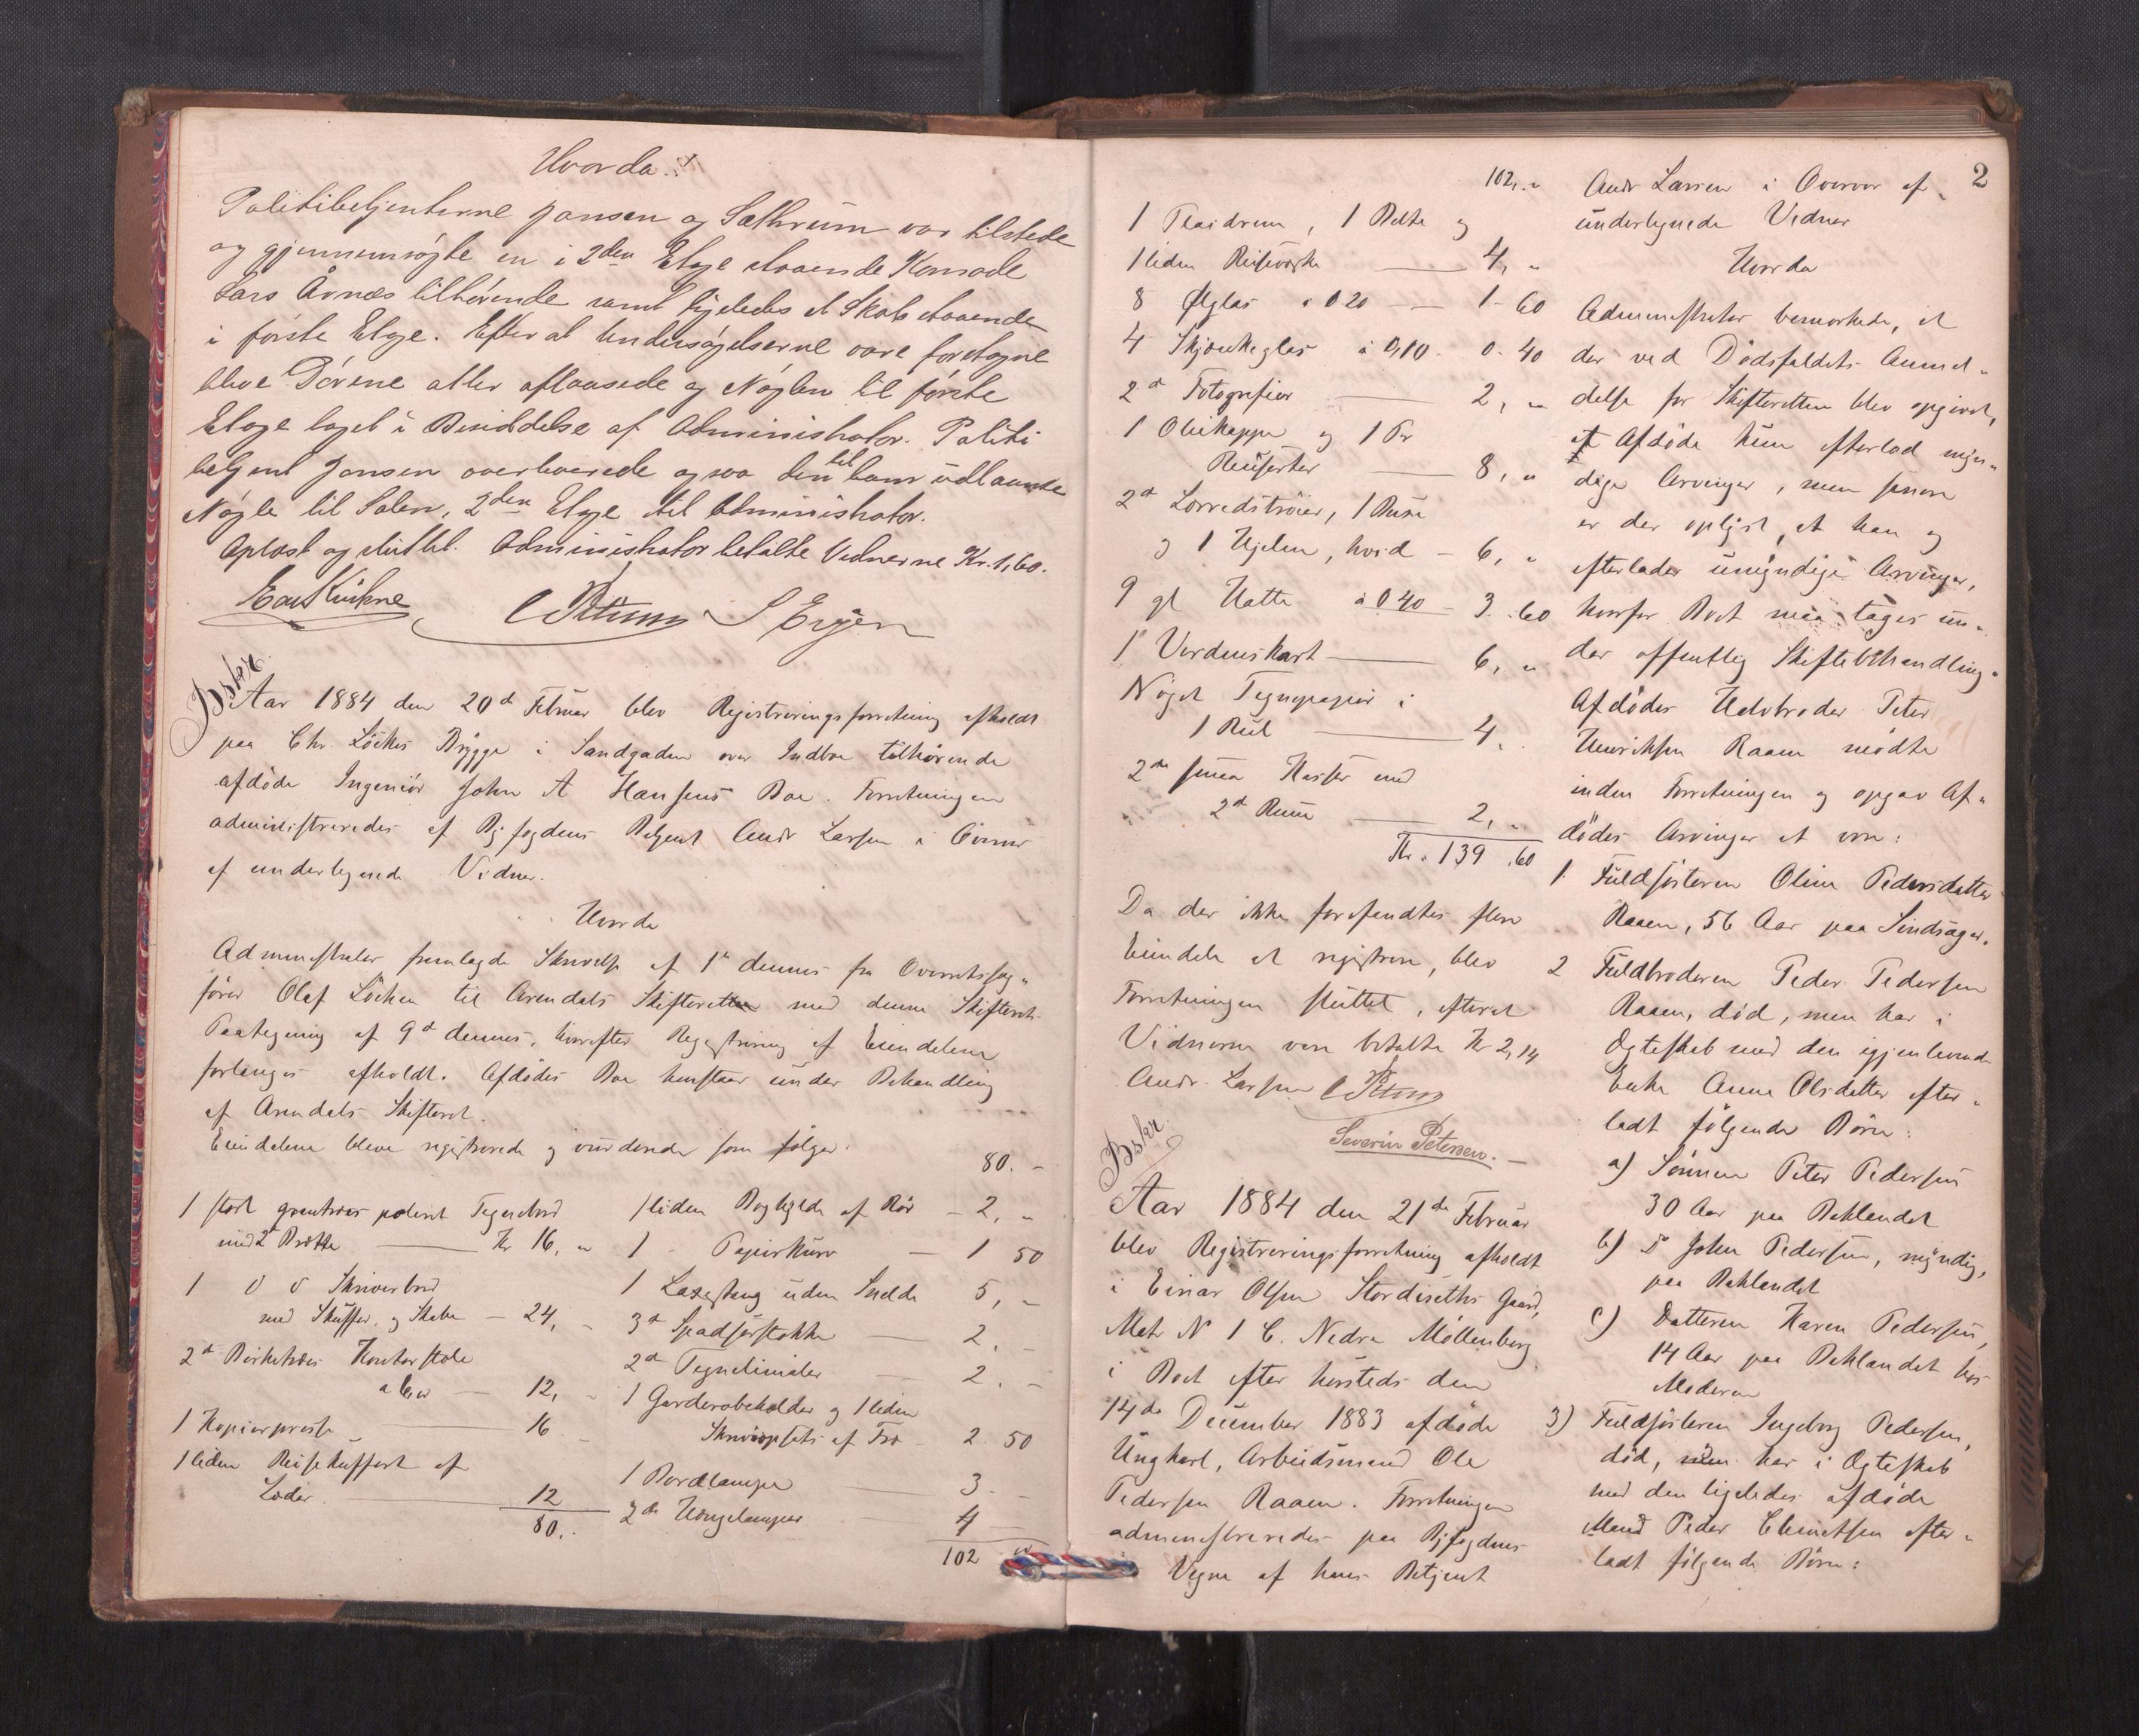 Hvorda:
Politibetjenterne Jansen og Sæthrum var tilstede
og gjennemsøgte en i 2den Etage staaende Komode
Lars Aanæs tilhørende samt ligeledes et Skab staaende
i første Etage. Efter at Undersøgelserne vare foretagne
bleve Dørene atter aflaasede og Nøglen til første
Etage taget i Besiddelse af Administrator. Politi
betjent Jansen overleverede ogsaa den til ham udlaante
Nøgle til Salen, 2den Etage til Administrator.
Oplæst og sluttet. Administrator betalte Vidnerne Kr. 1,60.
Bskr
Aar 1884 den 20d Februar blev Registreringsforretning afholdt
paa Chr. Löckes Brygge i Sandgaden over Indboe tilhørende
afdøde Ingeniør John A Hansens Boe. Forretningen
administreredes af Byfogdens Betjent Andr Larsen i Overvær
af undertegnede Vidner.
Hvorda
Administrator fremlagde Skrivelse af 1d dennes fra Overretssag„
fører Olaf Löchen til Arendals Skifteretten med denne Skifterets
Paategning af 9d dennes, hvorefter Registrering af Eiendelene
forlanges afholdt. Afdødes Boe henstaar under Behandling
af Arendals Skifteret.
Eiendelene bleve registrerede og vurderede som følger:
1 stort grantræes poleret Tegnebord
med 2 Brætte Kr 16, „
1 d d Skriverbord
med Skuffer og Skabe - 24, -
2d Birketræes Kontorstole
12, -
1 Kopierpresse 16 -
1 liden Reisekuffert af
Læder 12
80..
80. -
1 liden Boghylde af Rör - 2, „
1 Papirkurv - 1 50
1 Laxestang uden Snelde 5, -
3d Spadserstokke 2. -
2d Tegnelinialer 2. -
1 Garderobeholder og 1 liden
af Træ 2. 50
1 Bordlampe 3. -
2de Hængelamper 4
102 „
2
102, „
1 Plaidrem, 1 Belte og
1 liden Reisevæske 4, „
8 Ølglas à 0 20 1- 60
4 Skjænkeglas à 0,10 - 0. 40
2d Fotografier 2, „
1 Oliekappe og 1 Par
8, „
2d Lærredstrøier, 1 Buxe
og 1 Hjelm, hvid - 6, „
9 gl Hatte à 0 40 - 3. 60
1 Verdenskart 6, „
Noget Tegnepapir i
1 Rul 4.
2de smaa Kasser med
2d Rum 2, „
Kr. 139 .60
Da der ikke forefandtes flere
Eiendele at registrere, blev
Forretningen sluttet, efterat
Vidnerne vare betalte Kr 2,14
Andr. Larsen
Severin Petersen.
Bskr
Aar 1884 den 21de Februar
blev Registreringsforretning afholdt
i Einar Olsen Stordiseths Gaard,
Matr N 1 C. Nedre Møllenberg
i Boet efter hersteds den
14de December 1883 afdøde
Ungkarl, Arbeidsmand Ole
Pedersen Raaen. Forretningen
administreredes paa Byfogdens
Vegne af hans Betjent
Andr Larsen i Overvær af
undertegnede Vidner
Hvorda
Administrator bemærkede, at
der ved Dødsfaldets Anmel„
delse for Skifteretten blev opgivet,
at Afdøde kun efterlod myn„
dige Arvinger, men senere
er der oplyst, at han og
efterlader umyndige Arvinger,
hvorfor Boet maa tages un„
der offentlig Skiftebehandling.
Afdødes Halvbroder Peter
Henriksen Raaen mødte
inden Forretningen og opgav Af„
dødes Arvinger at være:
1. Fuldsøsteren Oline Pedersdatter
Raaen, 56 Aar paa Sindsager.
2 Fuldbroderen Peder Pedersen
Raaen, død, men har i
Ægteskab med den igjenlevende
Enke Anne Olsdatter efter„
ladt følgende Børn:
a) Sønnen Peter Pedersen
30 Aar paa Baklandet
b) d John Pedersen, myndig,
paa Baklandet
c) Datteren Karen Pedersen,
14 Aar paa Baklandet hos
Moderen
3) Fuldsøsteren Ingeborg Pedersen,
død, men har i Ægteskab
med den ligeledes afdøde
Mand Peder Clemetsen efter„
ladt følgende Børn: